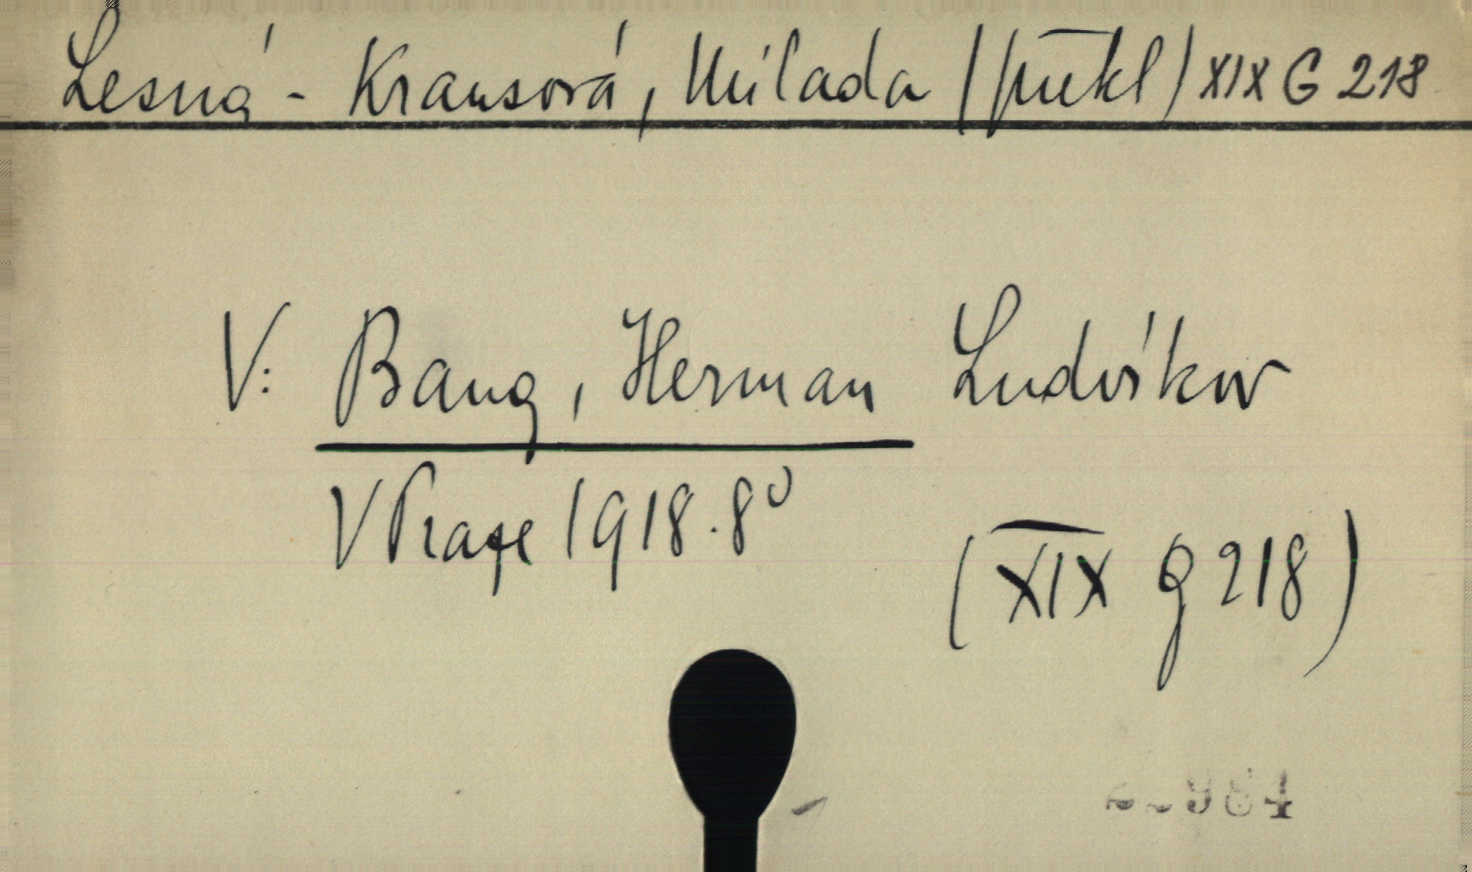 Lesná - Krausová, Milada (překl) XIX G 218
V: Bang, Herman Ludvíkov
V Praze 1918. 8°
(XIX G 218)